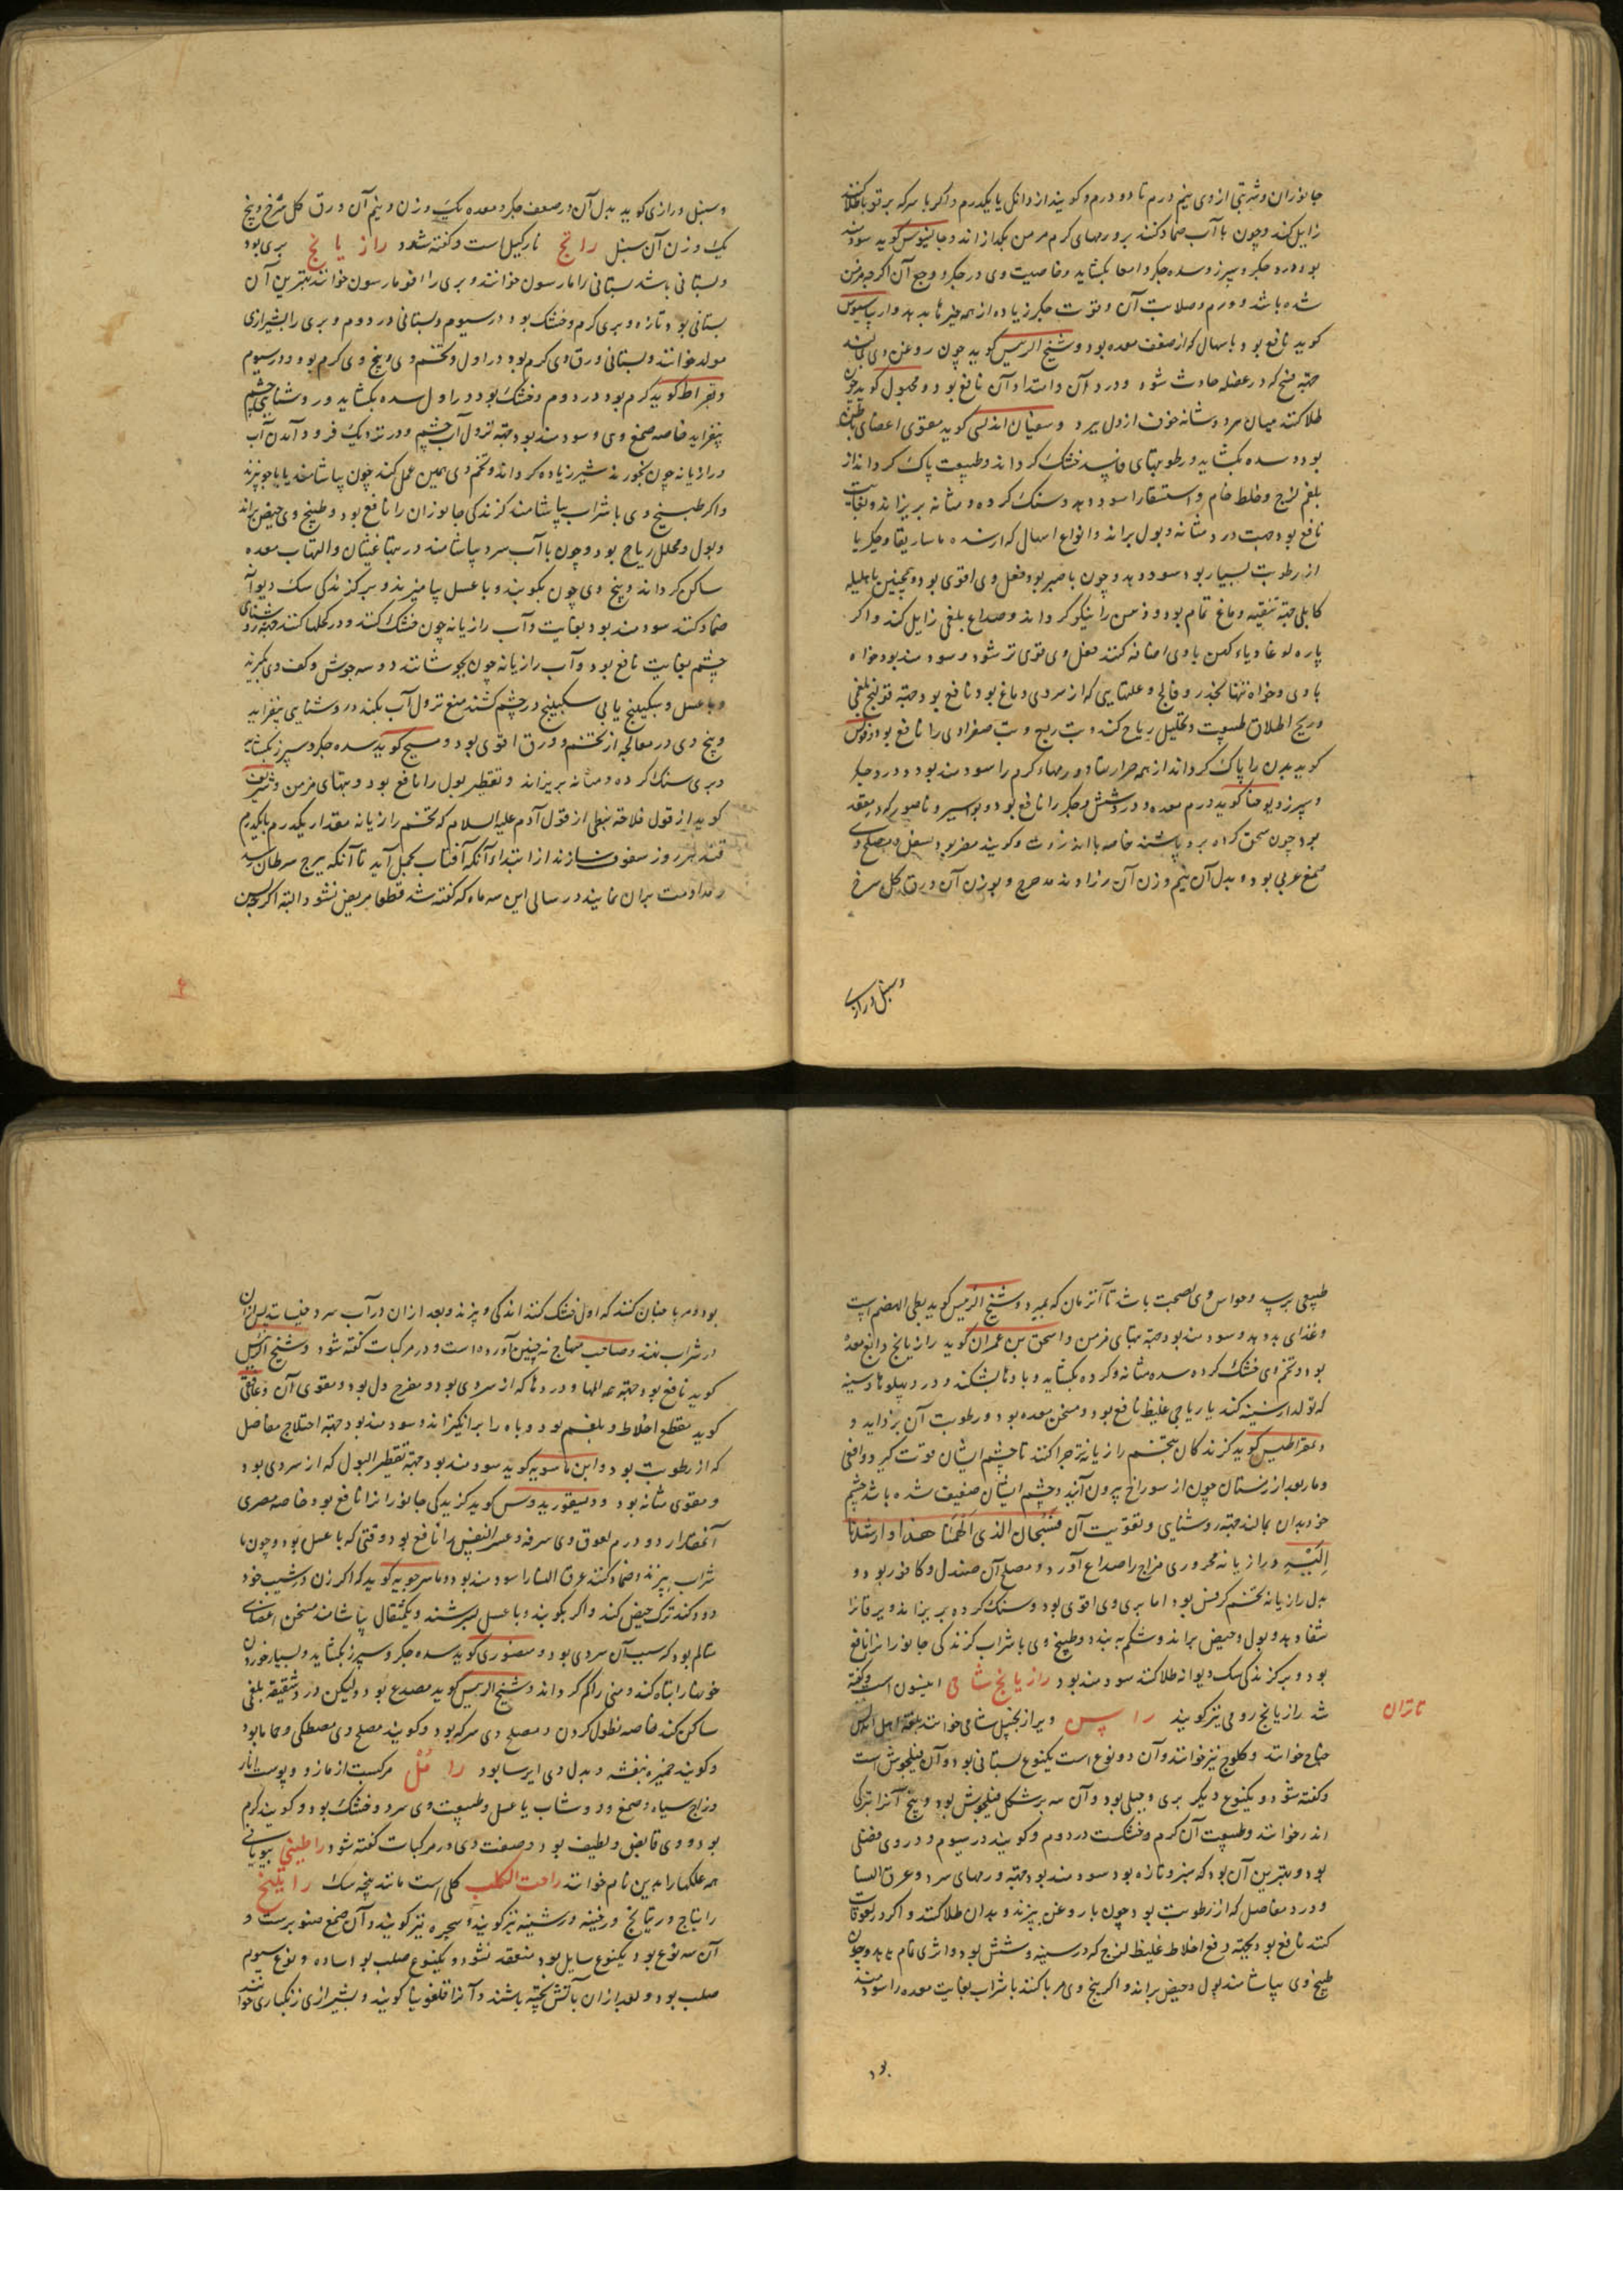 جانوران و شربتی از وی نیم درم تا دو درم و کویند از دانکی تا یکدرم و اکر با سرکه بر قوبا طلا کنند
زایل کند و چون با آب ضماد کنند بر ورمهای کرم مزمن بکدازاند و جالینوس کوید سودمند
بود درد جکر و سپرز و سده جکر و امعا بکشاید و خاصیت وی در جکر و وجع آن اکرچه مزمن
شده باشد و ورم و صلابت آن و قوت جکر زیاده از همه چیزها بدهد و
کوید نافع بود با سهال که از ضعف معده بود و شیخ الرییس کوید چون روغن وی بمالند
جهة فسخ که در عضله حادث شود و درد آن و امتداد آن نافع بود و مجهول کوید چون
طلا کنند میان هر دو شانه خوف از دل ببرد و سفیان اندلسی کوید مقوی اعضای باطن
بود و سده بکشاید و رطوبتهای فاسد خشک کرداند و طبیعت پاک کرداند از
بلغم لزج و خلط خام و استسقا را سود دهد و سنک کرده و مثانه بریزاند و بغایت
نافع بود جهت درد مثانه و بول براند و انواع اسهال که از سده ماساریقا و جکر یا
از رطوبت بسیار بود سود دهد و چون با صبر بود فعل وی اقوی بود و همچنین با هلیله
کابلی جهة تنقیه دماغ تمام بود و ذهن را نیکو کرداند و صداع بلغمی زایل کند و اکر
پاره لوغادیاء کهن با وی اضافه کنند فعل وی قوی تر شود و سودمند بود خواه
با وی و خواه تنها بجذر و فالج و علتهایی که از سردی دماغ بود نافع بود و جهة قولنج بلغمی
و ریح اطلاق طبیعت و تحلیل ریاح کند و تب ربع و تب صفراوی را نافع بود و
کوید بدن را پاک کرداند از همه حرارتها و ورمهاء کرم را سودمند بود و درد جکر
و سپرز و یوحنا کوید ورم معده و درد شش و جکر را نافع بود و بواسیر و ناصور که در مقعد
بود چون سحق کرده برو پاشند خاصه با انزروت و کویند مضر بود بسفل و مصلح وی
صمغ عربی بود و بدل آن نیم وزن آن رزاوند مدحرج و بوزن آن ورق کل سرخ
و سنبل و رازی
و سنبل و رازی کوید بدل آن در ضعف جکر و معده یک وزن و نیم آن ورق کل سرخ و پنج
یک وزن آن سنبل رانج نارکیل است و کفته شود رازیانج بری بود
و بستانی باشد بستانی را مارسون خوانند و بری را افومارسون خوانند بهترین آن
بستانی بود و تازه و بری کرم و خشک بود در سیوم و بستانی در دوم و بری را بشیرازی
مولد خوانند و بستانی ورق وی کرم بود در اول و تخم وی و بیخ وی کرم بود در سیوم
و بقراط کوید کرم بود در دوم و خشک بود در اول سده بکشاید و روشنایی چشم
بیفزاید خاصه صمغ وی و سودمند بود جهة نزول آب چشم و در نزدیک فرود آمدن آب
و رازیانه چون بخورند شیر زیاده کرداند و تخم وی همین عمل کند چون بیاشامند یا با جو بپزند
و اکر طبیخ وی با شراب بیاشامند کزندکی جانوران را نافع بود و طبیخ وی حیض براند
و بول و محلل ریاح بود و چون با آب سرد بیاشامند در تبها غثیان و التهاب معده
ساکن کرداند و بیخ وی چون بکوبند و با عسل بیامیزند و بر کزندکی سک دیوانه
ضماد کنند سودمند بود بغایت و آب رازیانه چون خشک کنند و در کحلها کنند جهة روشنایی
چشم بغایت نافع بود و آب رازیانه چون بجوشانند دو سه جوش و کف وی بکیرند
و با عسل و سکبینج یا بی سکبینج در چشم کشند منع نزول آب بکند و روشنایی بیفزاید
و بیخ وی در معالجه از تخم و ورق اقوی بود و مسیح کوید سده جکر و سپرز بکشاید
و بری سنک کرده و مثانه بریزاند و تقطیر بول را نافع بود و تبهای مزمن و شریف
کوید از قول فلاحة نبطی از قول آدم علیه السلام که تخم رازیانه مقدار یکدرم با یکدرم
قند هر روز سفوف سازند از ابتداء آنکه آفتاب بحمل آید تا آنکه ببرج سرطان رسد
و مداومت بران نمایند در سالی این سه ماه که کفته شد قطعا مریض نشود البته اکر
طبیعی برسد و حواس وی بصحت باشد تا آنزمان که بمیرد و شیخ الرییس کوید بطی الهضم است
و غذای بد دهد و سودمند بود جهة تبهای مزمن و اسحق بن عمران کوید رازیانج دابغ معده
بود و تخم وی خشک کرده سده مثانه و کرده بکشاید و بادها بشکند و درد پهلوها و سینه
که تولد از سینه کند یا ریاحی غلیظ نافع بود و مسخن معده بود و رطوبت آن بزداید و
دمقراطیس کوید کزندکان تخم رازیانه چرا کنند تا چشم ایشان قوت کیرد و افعی
و مار بعد از زمستان چون از سوراخ بیرون آیند و چشم ایشان ضعیف شده باشد چشم
خود بدان بمالند جهة روشنایی و تقویت آن فَسُبْحان الذی اَلْهَمَنا هذا و ارشدنا
اِلَیْهِ و رازیانه محروری مزاج را صداع آورد و مصلح آن صندل و کافور بود و
بدل رازیانه تخم کرفس بود اما بری وی اقوی بود و سنک کرده بریزاند و یرقان را
شفا دهد و بول و حیض براند و شکم ببندد و طبیخ وی با شراب کزندکی جانوران را نافع
بود و بر کزندکی سک دیوانه طلا کنند سودمند بود رازیانج شامی انیسون است و کفته
شد رازیانج رومی نیز کویند راسن ویرا زنجبیل شامی خوانند بلغة اهل اندلس
جناح خوانند و کلوج نیز خوانند و آن دو نوع است یکنوع بستانی بود و آن فیلجوش است
و کفته شود و یکنوع دیکر بری و جبلی بود و آن سه بر شکل فیلجوش بود و بیخ آنرا بترکی
اندز خوانند و طبیعت آن کرم و خشکست در دوم و کویند در سیوم و در وی فضلی
بود و بهترین آن بود که سبز و تازه بود سودمند بود جهة ورمهای سرد و عرق النسا
و درد مفاصل که از رطوبت بود چون با روغن بپزند و بدان طلا کنند و اکر در لعوقات
کنند نافع بود بجهة دفع اخلاط غلیظ لزج که در سینه و شش بود و اثری تمام بدهد و چون
طبیخ وی بیاشامند بول و حیض براند و اکر بیخ وی مربا کنند با شراب بغایت معده را سودمند
بود
بود و مربا چنان کنند که اول خشک کنند اندکی و بپزند و بعد ازان در آب سرد خیسانند پس ازان
در شراب نهند و صاحب منهاج نه چنین آورده است و در مرکبات کفته شود و شیخ الرییس
کوید نافع بود جهة همه المها و دردها که از سردی بود و مفرح دل بود و مقوی آن و غافقی
کوید مقطع اخلاط و بلغم بود و باه را برانکیزاند و سودمند بود جهة اختلاج مفاصل
که از رطوبت بود و ابن ماسویه کوید سودمند بود جهة تقطیر البول که از سردی بود
و مقوی مثانه بود و دیسقوریدوس کوید کزیدکی جانوران را نافع بود خاصه مصری
آنمقدار دو درم لعوق وی سرفه و عسر النفس را نافع بود وقتی که با عسل بود و چون با
شراب بپزند و ضماد کنند عرق النسا را سودمند بود و ماسرجویه کوید که اکر زن در شیب خود
دود کند ترک حیض کند و اکر بکوبند و با عسل بسرشند و یکمثقال بیاشامند مسخن اعضای
متالم بود که سبب آن سردی بود و منصوری کوید سده جکر و سپرز بکشاید و بسیار خوردن
خون را تباه کند و منی را کم کرداند و شیخ الرییس کوید مصدع بود ولیکن درد شقیقه بلغمی
ساکن کند خاصه نطول کردن و مصلح وی سرکه بود و کویند مصلح وی مصطکی و ماما بود
و کویند خمیره بنفشه و بدل وی ایرسا بود رامُک مرکبست از مازو و پوست انار
و زاج سیاه و صمغ و دوشاب یا عسل و طبیعت وی سرد و خشک بود و کویند کرم
بود و وی قابض و لطیف بود و صفت وی در مرکبات کفته شود راطینی بیونانی
همه علکها را بدین نام خوانند راحت الکلب کلی است مانند پنجه سک راتینج
راتیاج و ریتیانج و رفینه و رشینه نیز کویند و سحیره نیز کویند و آن صمغ صنوبرست و
آن سه نوع بود یکنوع سایل بود منعقد نشود و یکنوع صلب بود ساده و نوع سیوم
صلب بود و بعد ازان بآتش پخته باشند و آنرا قلفونیا کویند و بشیرازی زنکباری خوانند